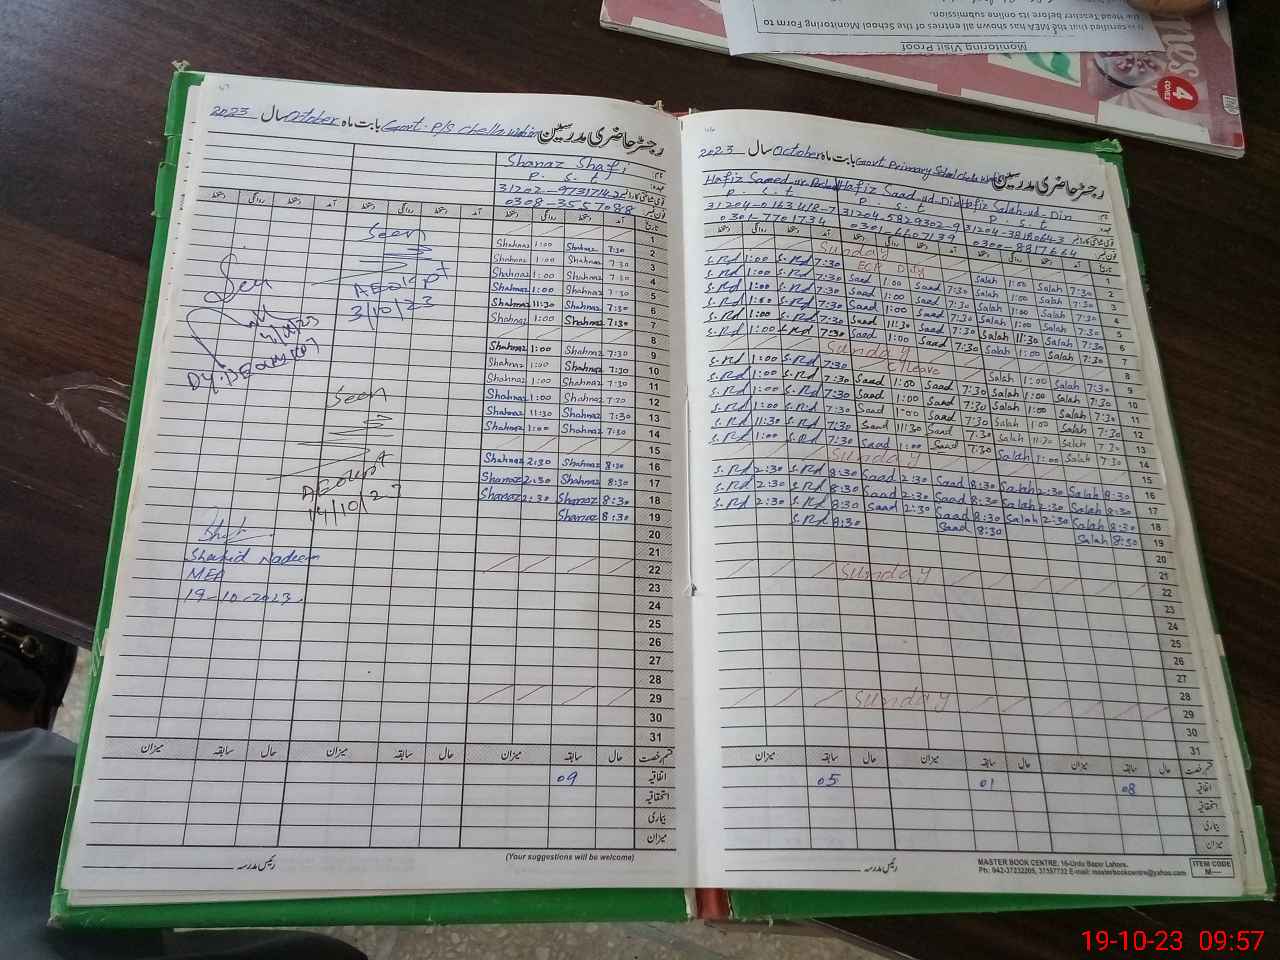 Monitoring Visit Proof
It is certified that the MEA has shown all entries of the School Monitoring Form to
the Head Teacher before its online submission.
4
رجسٹر حاضری مدرسین Govt. P/S بابت ماہ October سال 2023
Shanaz Shafi
P. S. T
31202-9731714-2
0308-3557088
تاریخ آمد دستخط روانگی دستخط آمد دستخط روانگی دستخط روانگی دستخط
1
2 7:30 Shahnaz 1:00 Shahnaz
3 7:30 Shahnaz 1:00 Shahnaz
4 7:30 Shahnaz 1:00 Shahnaz
5 7:30 Shahnaz 1:00 Shahnaz
6 7:30 Shahnaz 11:30 Shahnaz
7 7:30 Shahnaz 1:00 Shahnaz
8
9 7:30 Shahnaz 1:00 Shahnaz
10 7:30 Shahnaz 1:00 Shahnaz
11 7:30 Shahnaz 1:00 Shahnaz
12 7:30 Shahnaz 12:00 Shahnaz
13 7:30 Shahnaz 11:30 Shahnaz
14 7:30 Shahnaz 1:00 Shahnaz
15
16 8:30 Shahnaz 2:30 Shahnaz
17 8:30 Shahnaz 2:30 Shanaz
18 8:30 Shanaz 2:30 Shanaz
19 8:30 Shanaz
20
21
22
23
24
25
26
27
28
29
30
31
Seen
3/10/23
Seen
14/10/23
Shahid Nadeem
MEA
19-10-2023
قسم رخصت حال سابقہ میزان حال سابقہ میزان حال سابقہ میزان
اتفاقیہ 09
استحقاقیہ
بیماری
میزان
رئیس مدرسہ
(Your suggestions will be welcome)
رجسٹر حاضری مدرسین Govt Primary School بابت ماہ October سال 2023
Hafiz Saeed-ur- Hafiz Saad-ud-Din Hafiz Salah-ud-Din
P. S. T P. S. T P. S. T
31204-0163418-7 31204-5829302-9 31204-3818064-3
0301-7701734 0301-6607739 0300-8817664
Sunday
1
2 7:30 Salah 1:00 Salah 7:30 S.Rd 1:00 S.Rd
3 7:30 Salah 1:00 Salah 7:30 Saad 1:00 Saad 7:30 S.Rd 1:00 S.Rd
4 7:30 Salah 1:00 Salah 7:30 Saad 1:00 Saad 7:30 S.Rd 1:00 S.Rd
5 7:30 Salah 1:00 Salah 7:30 Saad 1:00 Saad 7:30 S.Rd 1:00 S.Rd
6 7:30 Salah 11:30 Salah 7:30 Saad 11:30 Saad 7:30 S.Rd
7 7:30 Salah 1:00 Salah 7:30 Saad 1:00 Saad 7:30 S.Rd 1:00 S.Rd
8 Sunday
9 7:30 Salah 1:00 Salah C/Leave 7:30 S.Rd 1:00 S.Rd
10 7:30 Salah 1:00 Salah 7:30 Saad 1:00 Saad 7:30 S.Rd 1:00 S.Rd
11 7:30 Salah 1:00 Salah 7:30 Saad 1:00 Saad 7:30 S.Rd 1:00 S.Rd
12 7:30 Salah 1:00 Salah 7:30 Saad 1:00 Saad 7:30 S.Rd 1:00 S.Rd
13 7:30 Salah 11:30 Salah 7:30 Saad 11:30 Saad 7:30 S.Rd 11:30 S.Rd
14 7:30 Salah 1:00 Salah 7:30 Saad 1:00 Saad 7:30 S.Rd 1:00 S.Rd
15 Sunday
16 8:30 Salah 2:30 Salah 8:30 Saad 2:30 Saad 8:30 S.Rd 2:30 S.Rd
17 8:30 Salah 2:30 Salah 8:30 Saad 2:30 Saad 8:30 S.Rd 2:30 S.Rd
18 8:30 Salah 2:30 Salah 8:30 Saad 2:30 Saad 8:30 S.Rd 2:30 S.Rd
19 8:30 Salah 8:30 Saad 8:30 S.Rd
20
21
22 Sunday
23
24
25
26
27
28
29 Sunday
30
31
قسم رخصت حال سابقہ میزان حال سابقہ میزان حال سابقہ میزان
اتفاقیہ 08 01 05
استحقاقیہ
بیماری
میزان
رئیس مدرسہ
MASTER BOOK CENTRE, 16-Urdu Bazar Lahore.
Ph: 042-37232205, 37357732 E-mail: masterbookcentre@yahoo.com
ITEM CODE
M—
19-10-23 09:57